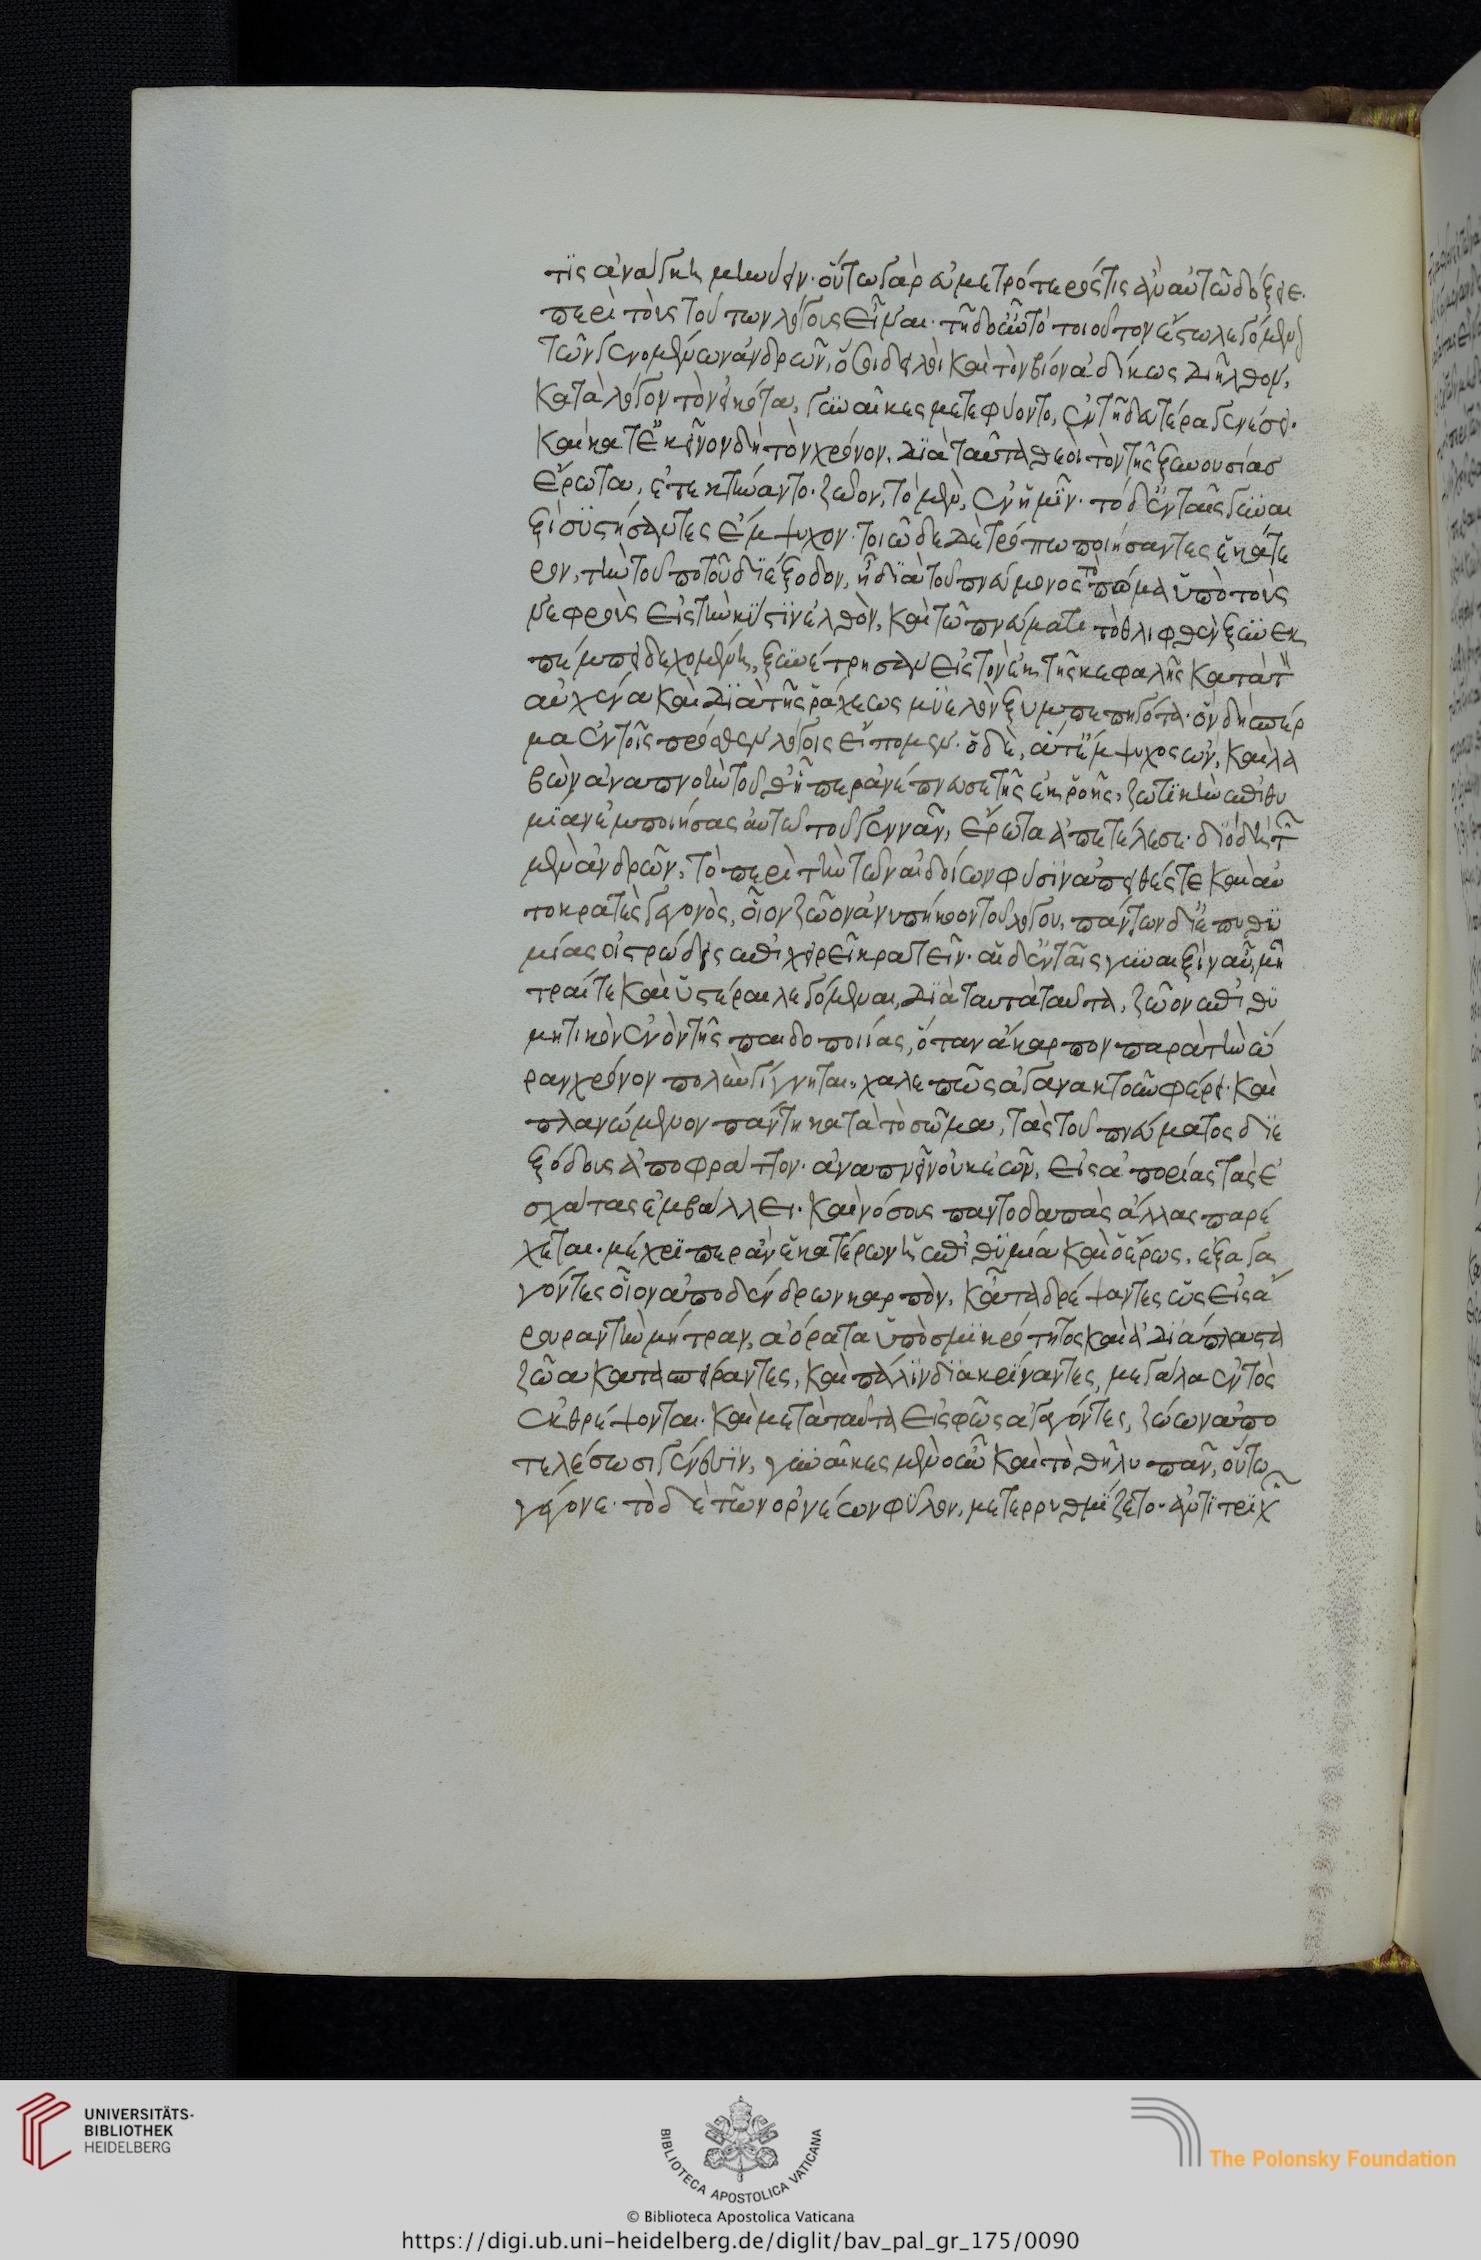 τϊς ἀνάγκη μηκύνειν· οὕτω γὰρ ἐμμετρότερός τις ἂν αὐτῶ δόξειε·
περὶ τοὺς τούτων λόγους εἶναι· τῆδ' οὖν τὸ τοιοῦτον ἔστω λεγόμενον
τῶν γενομένων ἀνδρῶν, ὅσοι δειλοὶ καὶ τὸν βίον ἀδίκως διῆλθον,
κατὰ λόγον τὸν εἰκότα, γυναῖκες μετεφύοντο, ἐν τῆ δευτέρα γενέσει·
καὶ κατ' ἐκεῖνον δὴ τὸν χρόνον, διὰ ταῦτα θεοὶ τὸν τῆς ξυνουσίας
ἔρωτα, ἐτεκτήναντο· ζῶον, τὸ μὲν, ἐν ἡμῖν· τὸ δ' ἐν ταῖς γυναι
ξὶ συστήσαντες ἔμψυχον· τοιῶδε δὲ τρόπω ποιήσαντες ἑκάτε
ρον, τὴν τοῦ ποτοῦ διέξοδον, ἧ διὰ τοῦ πνεύμονος τὸ πῶμα ὑπὸ τοὺς
νεφροὺς εἰς τὴν κύστιν ἐλθὸν, καὶ τῶ πνεύματι τὸ θλιφθὲν ξυνεκ
πέμπει δεχομένη, ξυνέτρησαν εἰς τὸν ἐκ τῆς κεφαλῆς κατὰ τὸν
αὐχένα καὶ διὰ τῆς ῥάχεως μυελὸν ξυμπεπηγότα· ὃν δὴ σπέρ
μα ἐν τοῖς πρόσθεν λόγοις εἴπομεν· ὁ δὲ, ἅτ' ἔμψυχος ὢν, καὶ λα
βὼν ἀναπνοὴν τοῦθ' ἧπερ ἀνέπνευσε τῆς ἐκροῆς, ζωτικὴν ἐπιθυ
μίαν ἐμποιήσας αὐτῶ τοῦ γεννᾶν, ἔρωτα ἀπετέλεσε· διὸ δὴ τῶν
μὲν ἀνδρῶν, τὸ περὶ τὴν τῶν αἰδοίων φύσιν ἀπειθές τε καὶ αὐ
τοκρατὲς γεγονὸς, οἷον ζῶον ἀνυπήκοον τοῦ λόγου, πάντων δι' ἐπιθυ
μίας οἰστρώδεις ἐπιχειρεῖ κρατεῖν· αἱ δ' ἐν ταῖς γυναιξὶν αὖ, μῆ
τραί τε καὶ ὑστέραι λεγόμεναι, διὰ ταυτὰ ταῦτα, ζῶον ἐπιθυ
μητικὸν ἐνὸν τῆς παιδοποιίας, ὅταν ἄκαρπον παρὰ τὴν ὥ
ραν χρόνον πολὺν γίγνηται, χαλεπῶς ἀγανακτοῦν φέρει· καὶ
πλανώμενον πάντη κατὰ τὸ σῶμα, τὰς τοῦ πνεύματος διε
ξόδους ἀποφράττον· ἀναπνεῖν οὐκ ἐῶν, εἰς ἀπορίας τὰς ἐ
σχάτας ἐμβάλλει· καὶ νόσους παντοδαπὰς ἄλλας παρέ
χεται· μέχριπερ ἂν ἑκατέρων ἡ ἐπιθυμία καὶ ὁ ἔρως, ἐξαγα
γόντες οἷον ἀπὸ δένδρων καρπὸν, καταδρέψαντες ὡς εἰς ἄ
ρουραν τὴν μήτραν, ἀόρατα ὑπὸ σμικρότητος καὶ ἀδιάπλαστα
ζῶα κατασπείραντες, καὶ πάλιν διακρίναντες, μεγάλα ἐντὸς
ἐκθρέψονται· καὶ μετὰ ταῦτα εἰς φῶς ἀγαγόντες, ζώων ἀπο
τελέσωσι γένεσιν, γυναῖκες μὲν οὖν καὶ τὸ θῆλυ πᾶν, οὕτω
γέγονε· τὸ δὲ τῶν ὀρνέων φῦλον, μετερρυθμίζετο· ἀντὶ τριχῶν